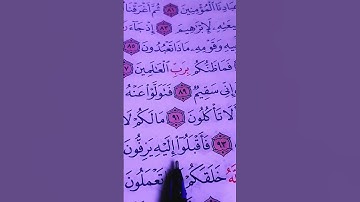 عِبَادِنَا ٱلۡمُؤۡمِنِينَ ٨١ ثُمَّ أَغۡرَقۡنَا
لَإِبۡرَٰهِيمَ ٨٣ إِذۡ جَآءَ
وَقَوۡمِهِۦ مَاذَا تَعۡبُدُونَ ٨٥
فَمَا ظَنُّكُم بِرَبِّ ٱلۡعَٰلَمِينَ
سَقِيمٞ ٨٩ فَتَوَلَّوۡاْ عَنۡهُ
تَأۡكُلُونَ ٩١ مَا لَكُمۡ لَا
٩٣ فَأَقۡبَلُوٓاْ إِلَيۡهِ يَزِفُّونَ
خَلَقَكُمۡ تَعۡمَلُونَ